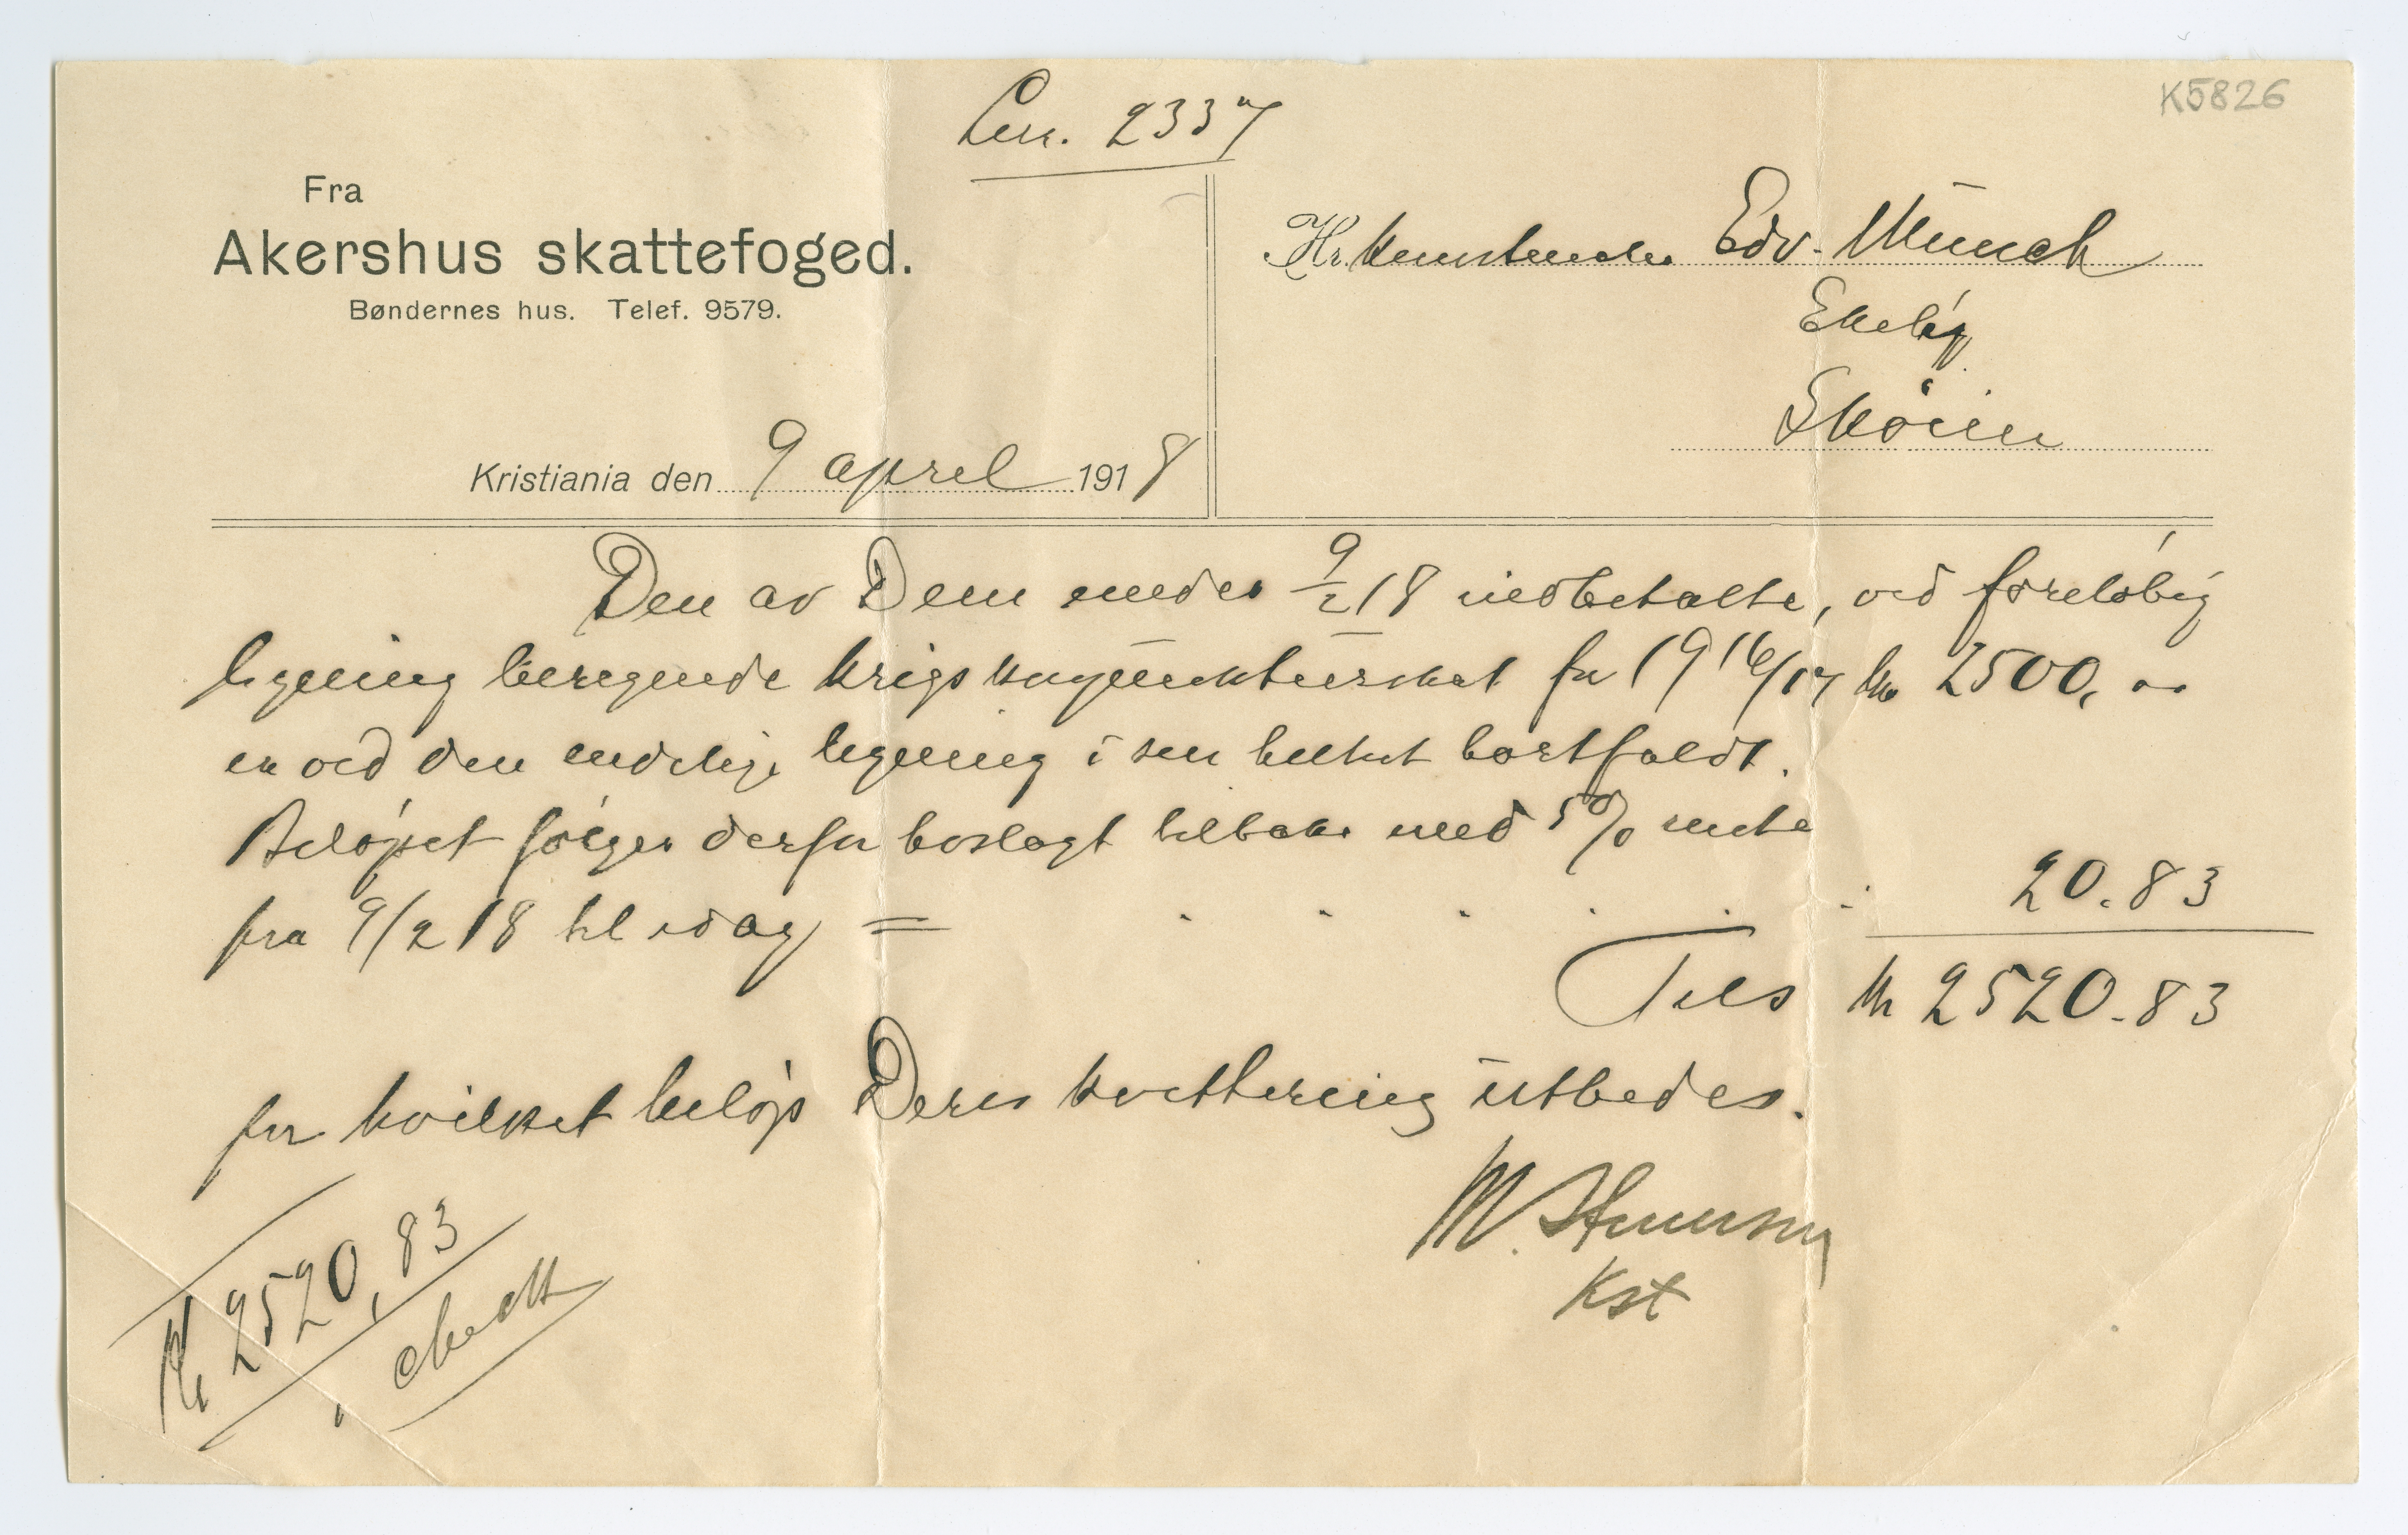 K5826
Lnr. 2337
Fra
Akershus skattefoged.
Bøndernes hus. Telef. 9579.
Kristiania den 9 april 1918
Hr. Kunstmaler Edv. Munch
Ekely
Skøien
Den av Dem under 9/2 18 indbetalte, ved foreløbig
ligning beregnede krigskonjunkturskat for 1916/17 kr 2500,
er ved den endelige ligning i sin helhet bortfaldt.
Beløpet følger derfor vedlagt tilbake med 5% rente
fra 9/2 18 til idag = . . . . . . 20.83
Tils kr 2520.83
for hvilket beløp Deres kvittering utbedes.
M.
Kst
Kr 2520,83